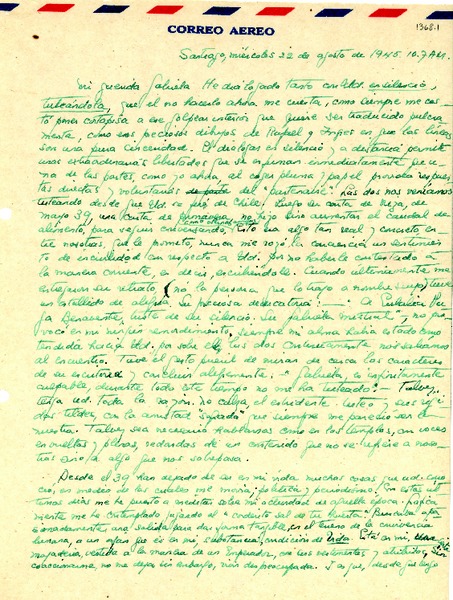 CORREO AEREO
1368.1
Santiago, miércoles 22 de agosto de 1945. 10.7 AM.
Mi querida Gabriela He dialogado tanto con Ud. en silencio,
tuteándola, que el no hacerlo ahora me cuesta, como siempre me cos-
tó poner cortapisa a ese golpear interior que quiere ser traducido pulcra-
mente, como esos preciosos dibujos de Rafael o Ingres en que las líneas
son una pura sinceridad. El dialogar en silencio y a distancia permite
unas extraordinarias libertades que se esfuman inmediatamente que u-
na de las partes, como yo ahora, al coger pluma y papel provoca respues-
tas directas y voluntarias de parte del "partenaire". Las dos nos veníamos
tuteando desde que Ud. se fué de Chile. Luego su carta de Niza, de
mayo 39, una carta de no hizo sino aumentar el caudal de
alimento, para seguir conversando. Esto era algo tan real y concreto en-
tre nosotras, que le prometo, nunca me rozó la conciencia un sentimien-
to de incivilidad con respecto a Ud. por no haberle contestado a
la manera corriente, es decir, escribiéndole. Cuando últimamente me
entregaron su retrato (no la persona que lo trajo a nombre suyo) tuve
un estallido de alegría. Su preciosa dedicatoria: - "A
Benavente, triste de su silencio. Su Gabriela Mistral" y no pro-
vocó en mí ningún remordimiento, siempre mi alma había estado como
tendida hacia Ud. pa sobre ella, las dos continuamente nos salíamos
al encuentro. Tuve el gesto pueril de mirar de cerca los caracteres
de su escritura y concluir alegremente: - "Gabriela, es infinitamente
culpable, durante todo este tiempo no me ha tuteado". - Talvez,
tenga Ud. toda la razón. No calza el estridente tuteo y sus rígi-
dos tildes, con la amistad que siempre me pareció ser la
nuestra. Talvez sea necesario hablarnos como en los templos, con voces
envueltas y planas, redondas de un contenido que no se refiere a noso-
tras sino a algo que nos sobrepasa.
Desde el 39 han dejado de ser en mi vida muchas cosas que Ud. cono-
ció, en medio de las cuales me movía; política y periodismo. En estos úl-
timos días me he puesto a meditar sobre mi de aquella época y
mente me he contemplado jugando al "codito sal de tu huerta". Buscaba apa-
sionadamente una salida para dar forma tangible, en el seno de la convivencia
humana, a un afán que es en mí, substancia, condición de vida. Esta en mí,
majadería, vestida a la manera de un Emperador, con sus vestimentas y atributos, sin
no me deja sin embargo, vivir despreocupada. I as que, desde que tengo